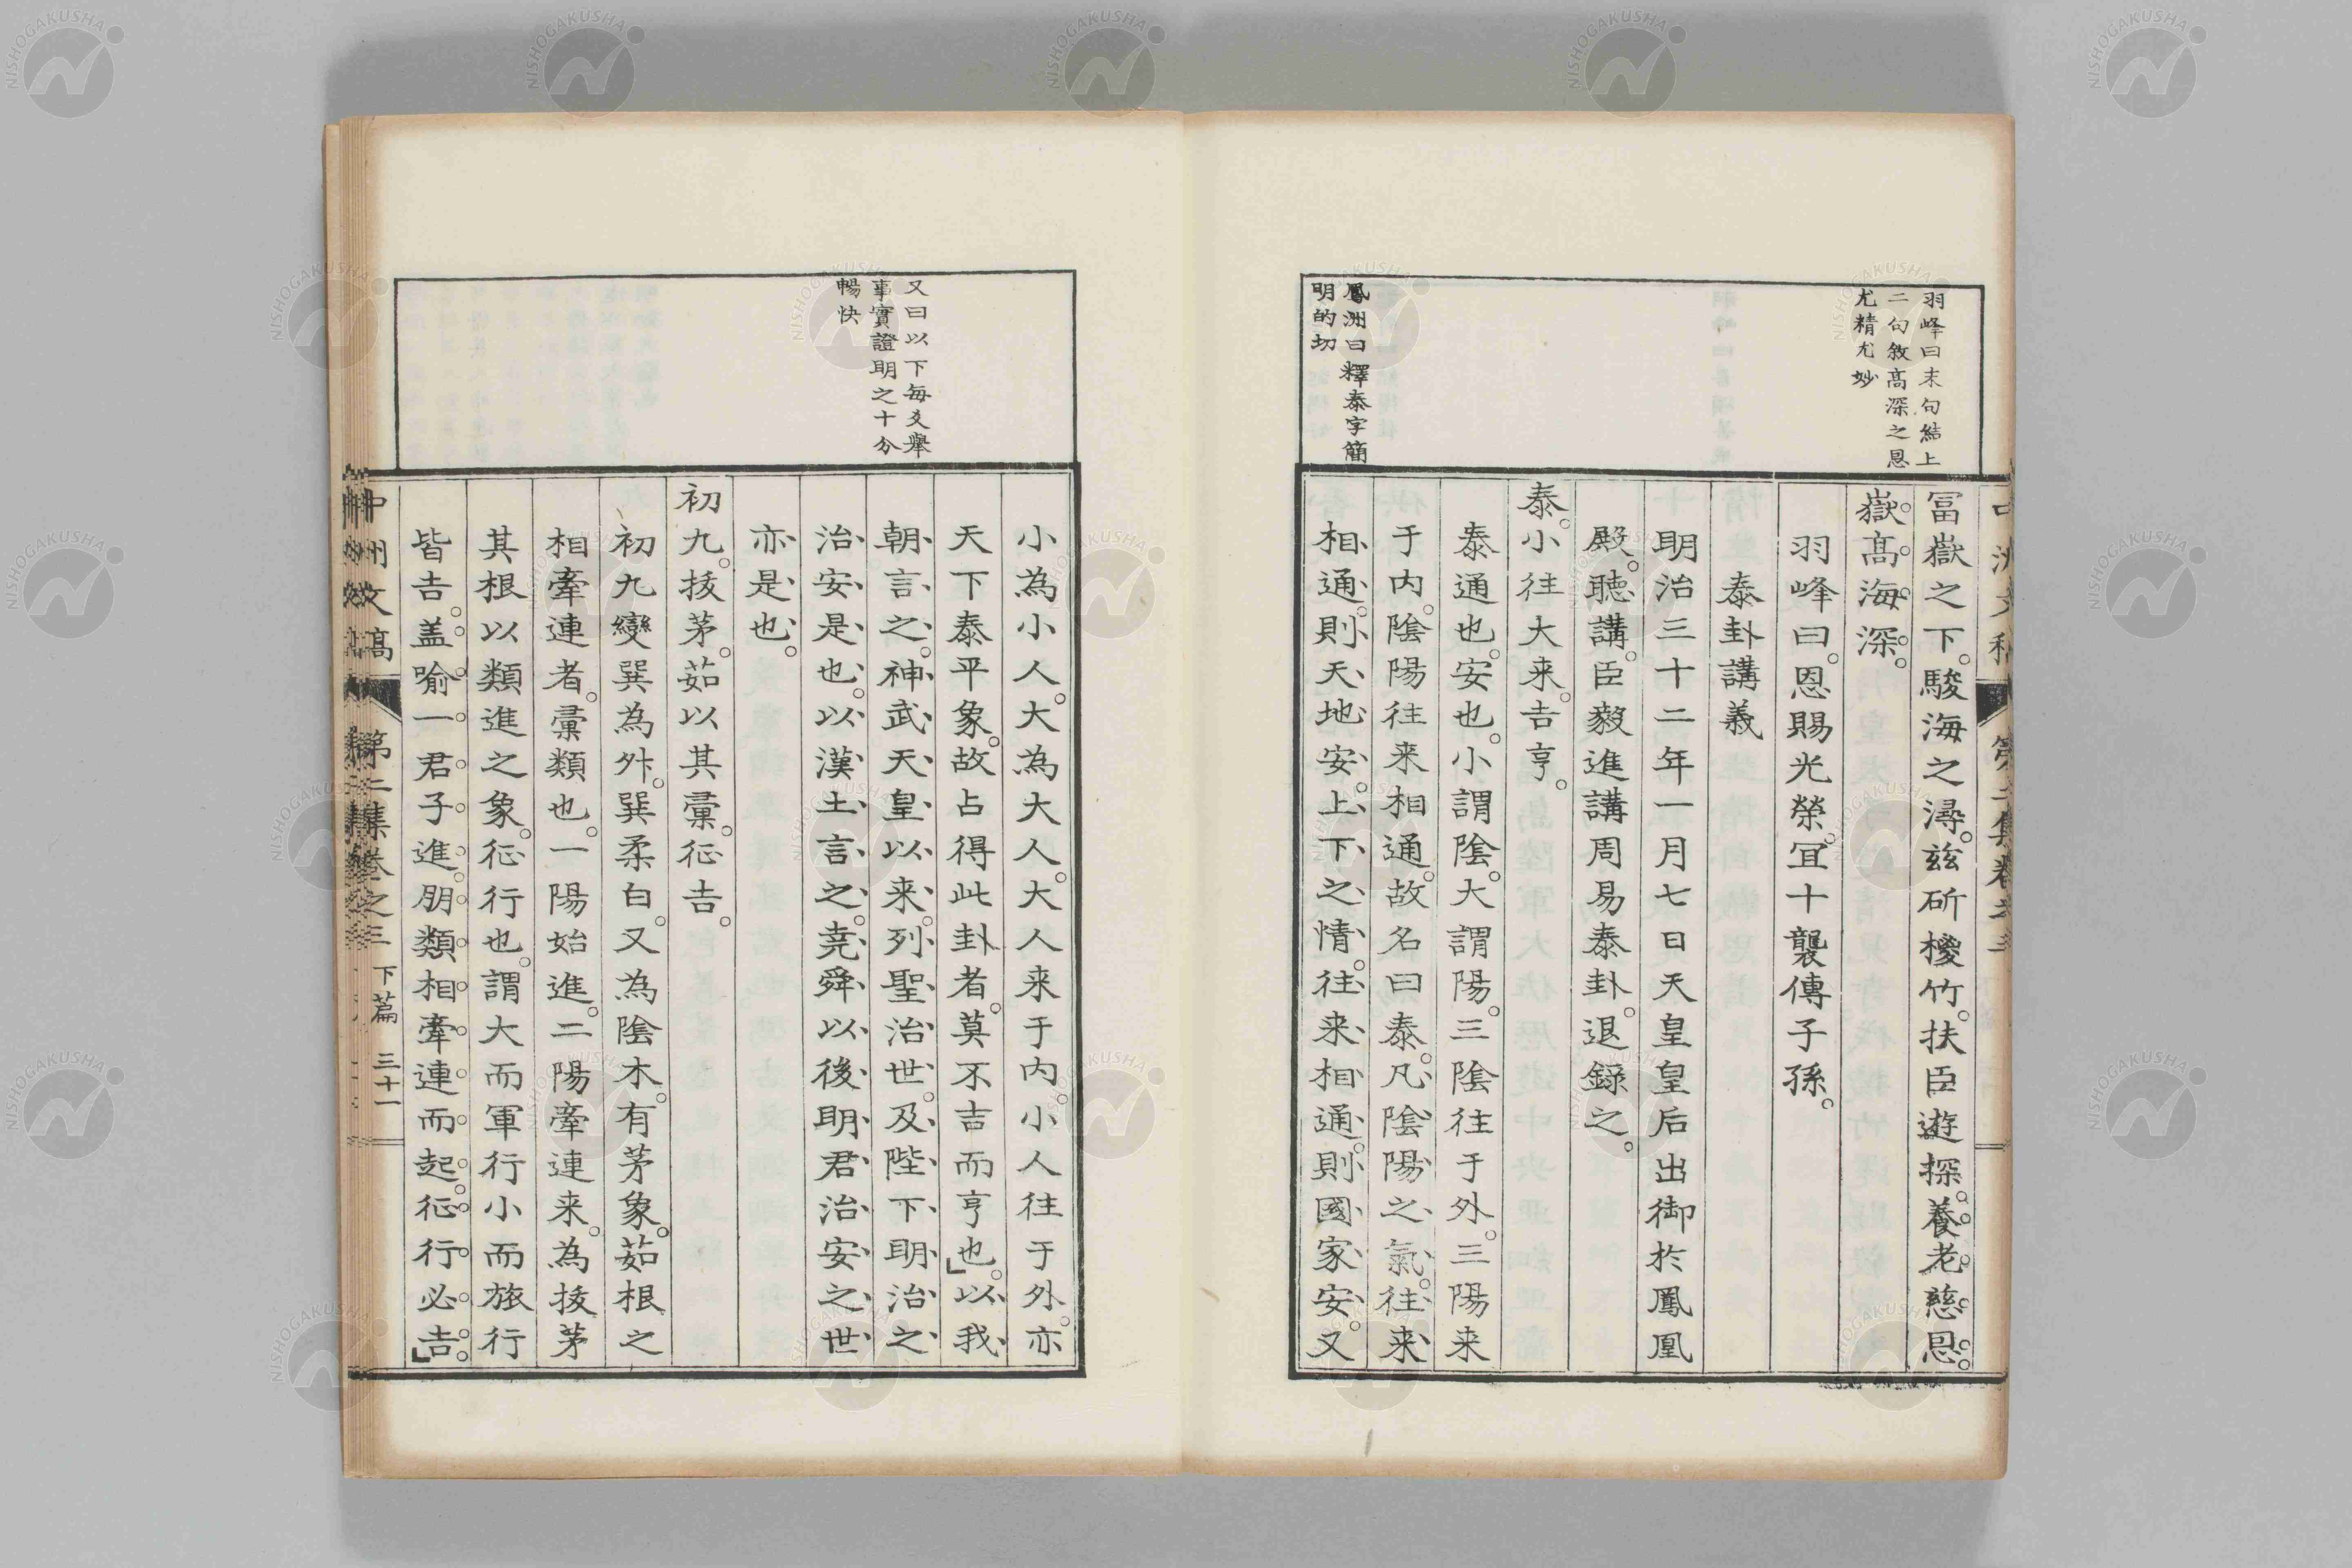 羽峰曰末句結上
二句敘髙深之恩
尤精尤妙
鳳洲曰釋泰字簡
明的切
冨嶽之下。駿海之潯。玆斫櫌竹。扶臣遊探。養老慈恩。
嶽髙海深。
羽峰曰。恩賜光榮。冝十襲傳子孫。
泰卦講義
明治三十二年一月七日天皇皇后出御於鳳凰
殿。聽講。臣毅進講周易泰卦。退錄之。
泰。小往大来。吉亨。
泰通也。安也。小謂陰。大謂陽。三陰往于外。三陽来
于内。陰陽往来相通。故名曰泰。凡陰陽之氣。往来
相通。則天地安。上下之情。往来相通。則國家安。又
又曰以下每爻舉
事實證明之十分
暢快
小為小人。大為大人。大人来于内。小人往于外。亦
天下泰平象。故占得此卦者。莫不吉而亨也。」以我
朝言之。神武天皇以来。列聖治世。及陛下明治之
治安是也。以漢土言之。堯舜以後明君治安之世
亦是也。
初九。拔茅。茹以其彙。征吉。
初九變巽為外。巽柔白。又為陰木。有茅象。茹根之
相牽連者。彙類也。一陽始進。二陽牽連来。為拔茅
其根以類進之象。征行也。謂大而軍行小而旅行
皆吉。盖喻一君子進。朋類相牽連而起。征行必吉。」
中洲文稿 第二集卷之三 下篇 三十一